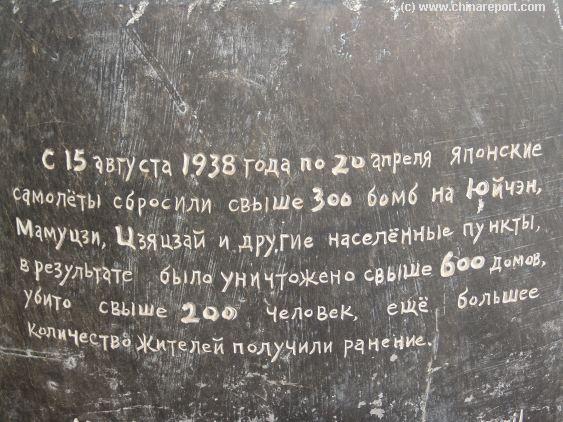 (c) www.chinareport.com
С 15 августа 1938 года по 20 апреля японские
самолёты сбросили свыше 300 бомб на Юйчэн,
Мамуцзи, Цзяцзай и другие населённые пункты,
в результате было уничтожено свыше 600 домов,
убито свыше 200 человек, ещё большее
количество жителей получили ранение.